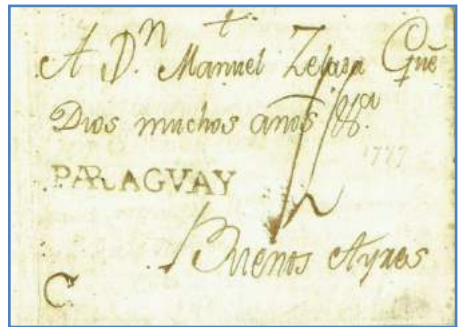 A D.ⁿ Manuel Gūe
Dios muchos años
1777
PARAGVAY
Buenos Ayres
C